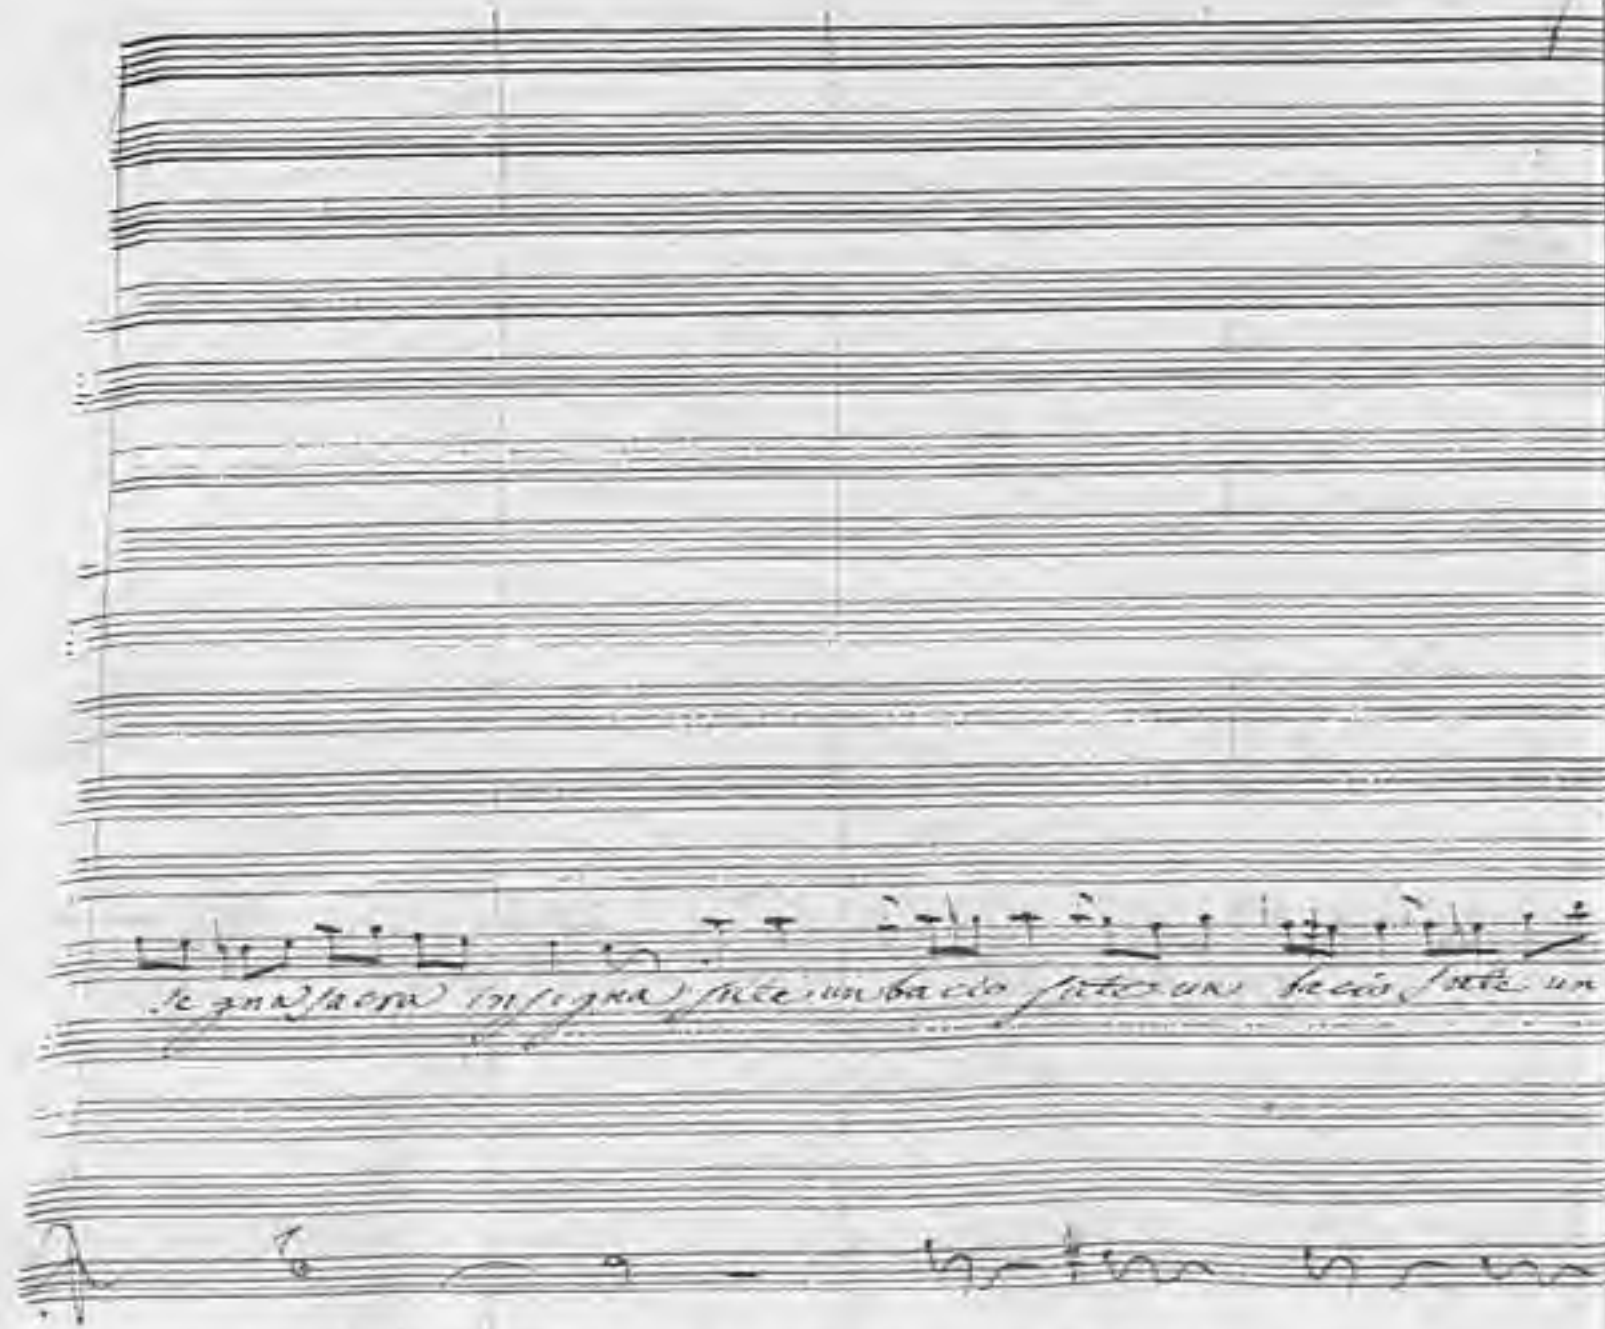 se gna sacra insegna fate un bacio fate un bacio fate un